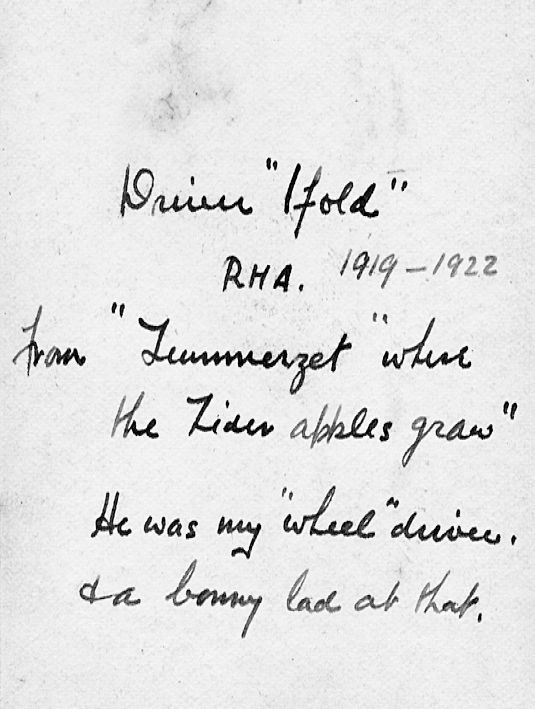 Driver "Ifold"
RHA. 1919-1922
from "Zummerzet" "where
the Zider apples graw"
He was my "wheel" driver.
& a bonny lad at that.